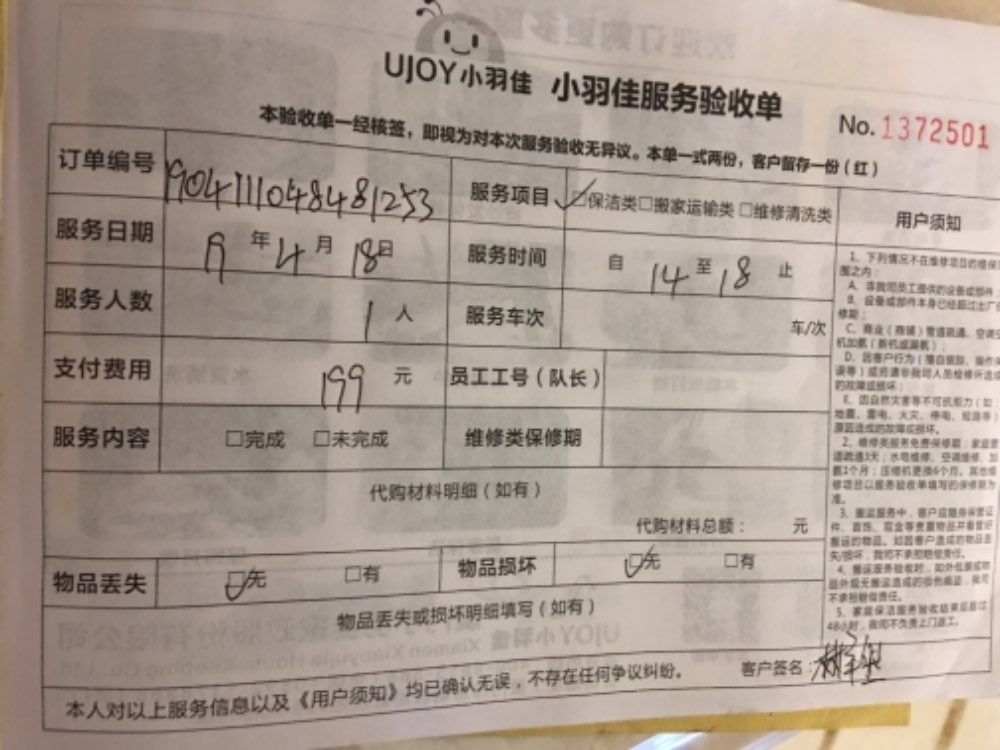 UJOY小羽佳 小羽佳服务验收单
No.1372501
本验收单一经核签，即视为对本次服务验收无异议。本单一式两份，客户留存一份（红）
订单编号 1904111048481253 服务项目 ☑保洁类□搬家运输类 □维修清洗类
服务日期 19年4月18日 服务时间 自14至18止
服务人数 1人 服务车次 车/次
支付费用 199元 员工工号（队长）
服务内容 □完成 □未完成 维修类保修期
代购材料明细（如有）
代购材料总额： 元
物品丢失 ☑无 □有 物品损坏 ☑无 □有
物品丢失或损坏明细填写（如有）
本人对以上服务信息以及《用户须知》均已确认无误，不存在任何争议纠纷。 客户签名：
用户须知
1、下列情况不在维修项目的维保范
围之内：
A、非我司员工提供的设备或部件
B、设备或部件本身已经超过出厂保
修期；
C、商业（商铺）管道疏通、空调空
机加氨（新机或漏氨）；
的故障或损坏；
E、因自然灾害等不可抗能力（如：
地震、雷电、火灾、停电、短路等）
原因造成的故障或损坏。
2、维修类服务免费保修期：家庭管
道疏通3天；水电维修、空调维修、加
氨1个月；压缩机更换6个月。其他维
修项目以服务验收单填写的保修期为
准。
3、搬运服务中，客户应随身保管证
件、首饰、现金等贵重物品并看管好
搬运的物品。如因客户造成的物品丢
失/损坏，我司不承担赔偿责任。
4、搬运服务验收时，如外包装或物
品外观无搬运造成的损伤痕迹，我司
不承担赔偿责任。
5、家庭保洁服务验收结束后超过
48小时，我司不负责上门返工。